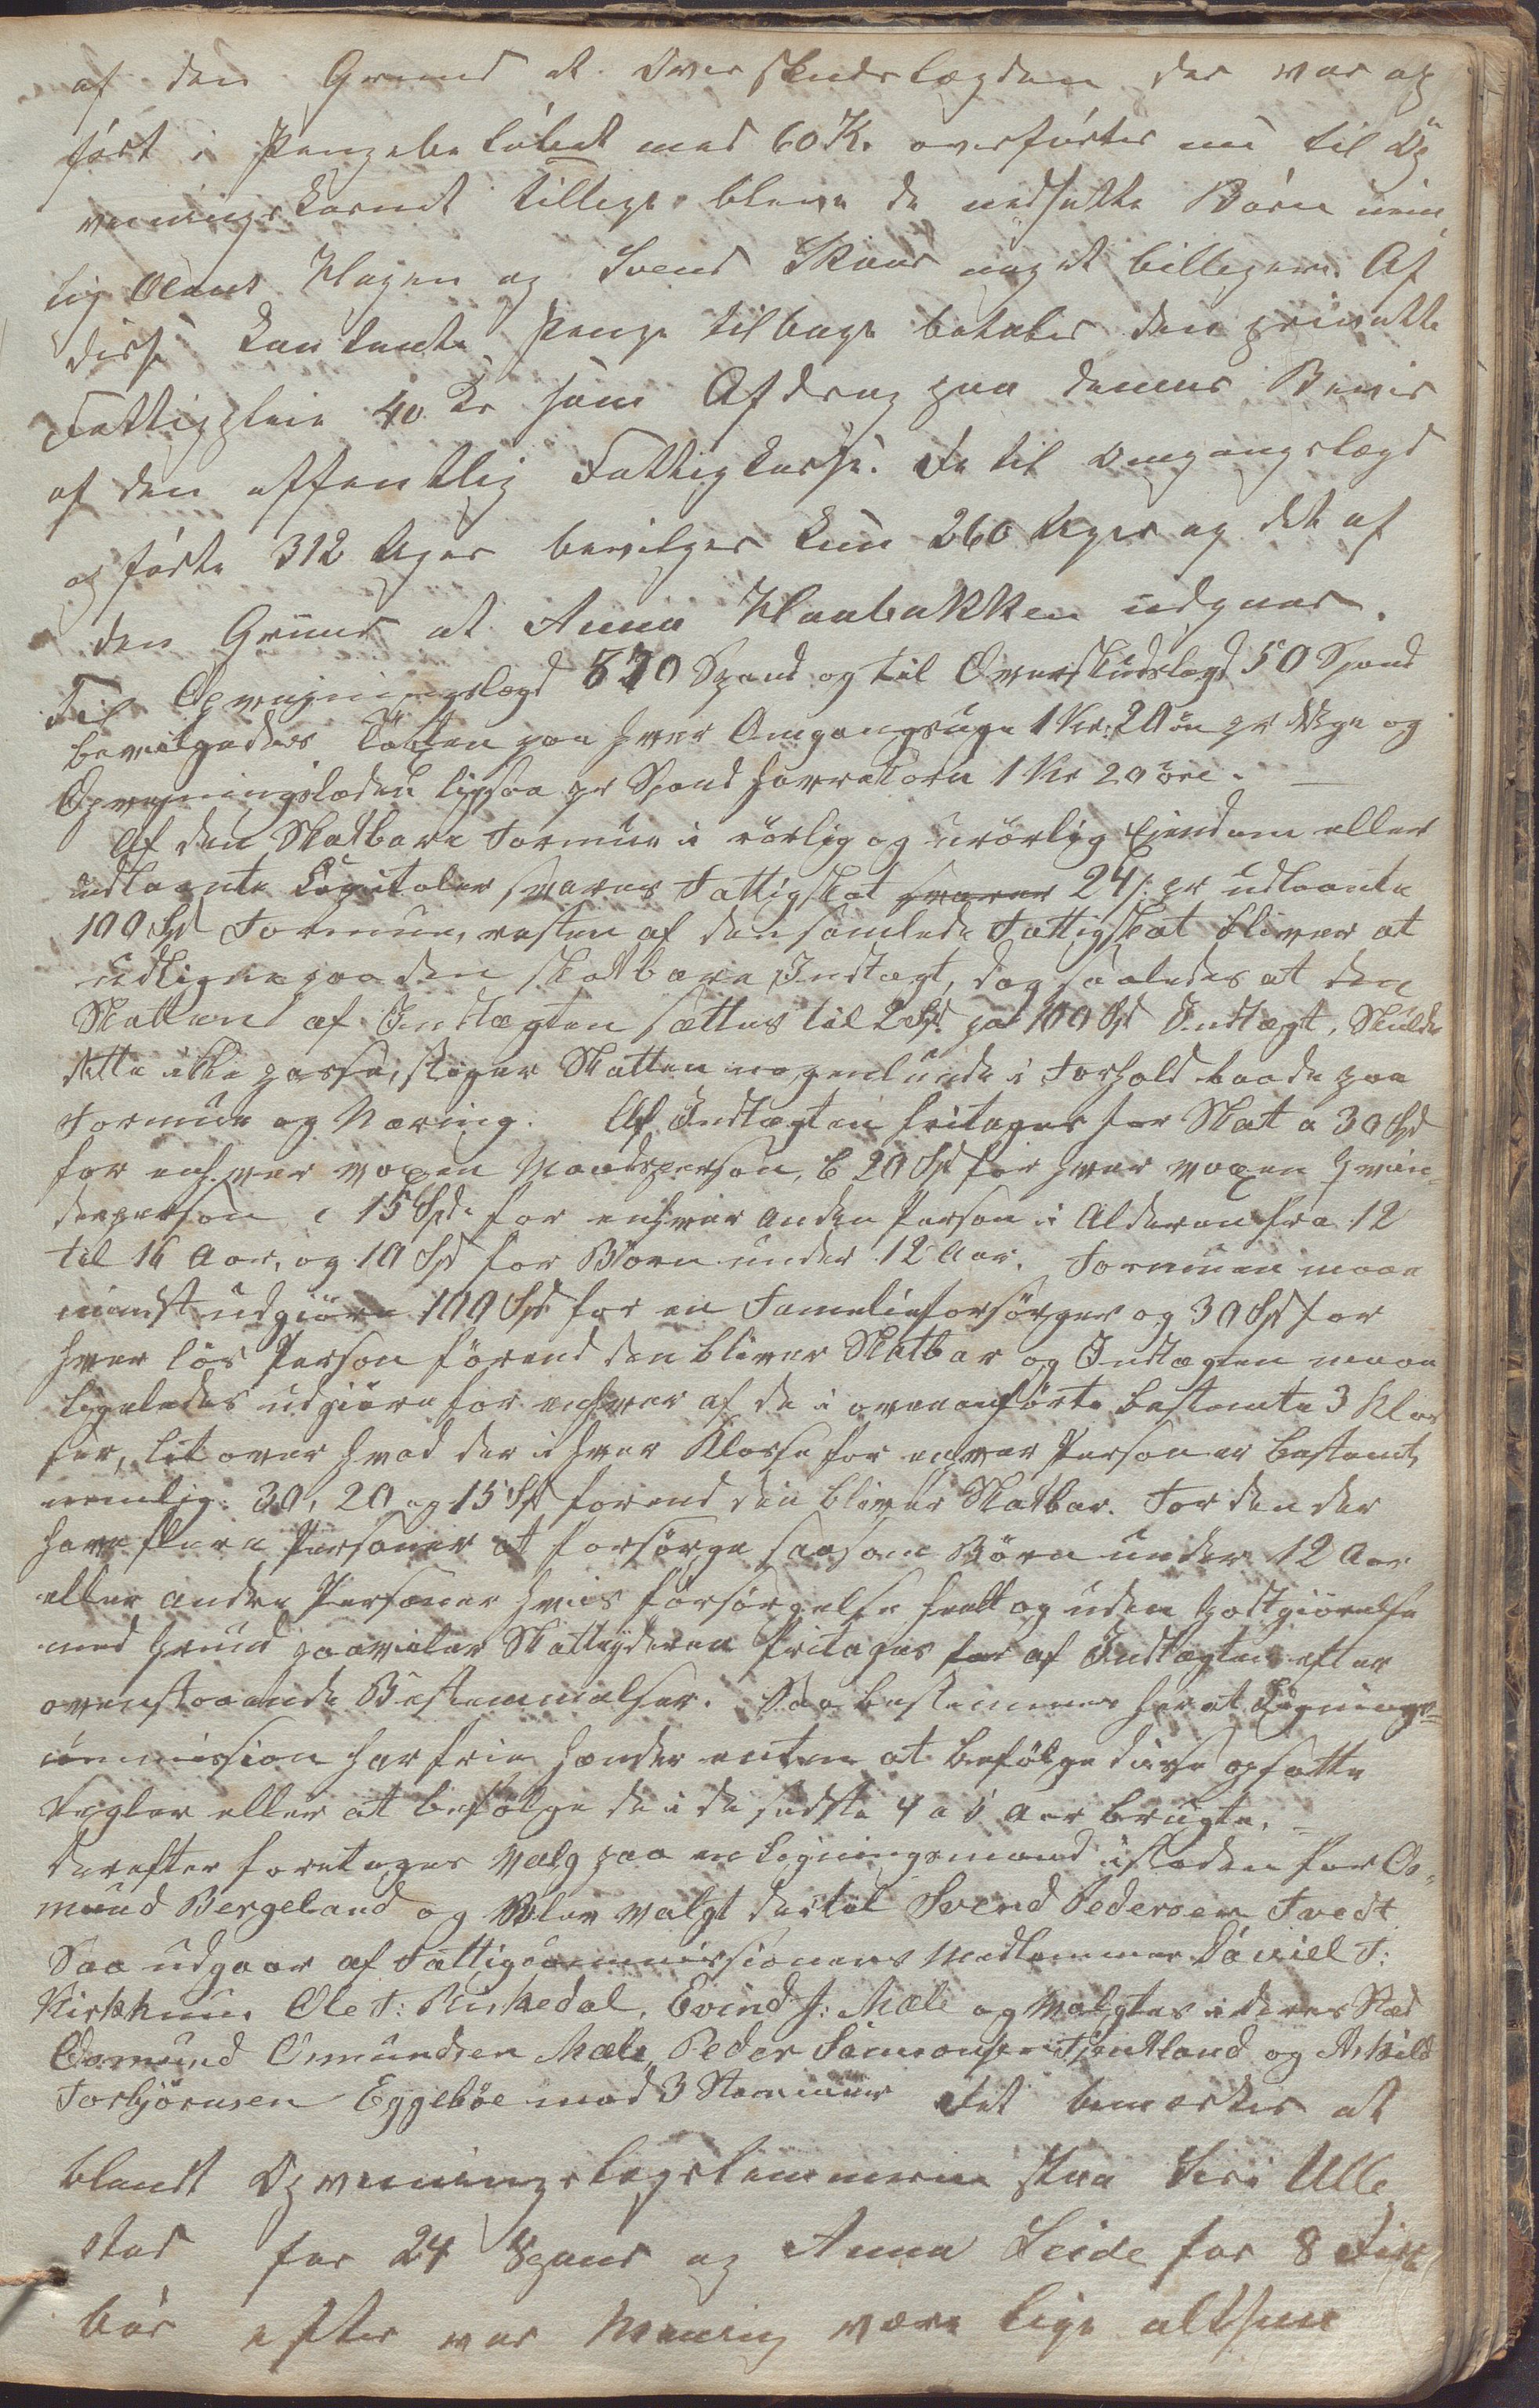 af den Grund at Overskudslægden der var op
ført i Pengebeløbet med 60 Kr. overførtes nu til Op
veiningskornet tillige bleve de nedsatte Børn nem
lig Olaus Hagen og Svend Skaar noget billigere. Af
disse kontante Penge tilbage betales den private
Fattigpleie 40 Kr som Afdrag paa dennes Bevis
af den offentlig Fattigkasse. De til Omgangslægd
opførte 312 Uger bevilges kun 260 Uger og det af
den Grund at Anna Haabakken udgaar.
Til Opvejningslægd 870 Spand og til Overskudslægd 50 Spand
bevilgedes Taxten paa hver Omgangsuge 1 Kr. 20 öre pr Uge og
Opvejningslæden ligesaa pr Spand Havrekorn 1 Kr 20 öre. —
Af den Skatbare Formue i rörlig og urörlig Ejendom eller
udlaante Capitaler svares Fattigskat svares 24 s. pr udlaante
100 Spd Formue, resten af den samlede Fattigskat bliver at
udligne paa den skatbare Indtægt, dog saaledes at den
Skatten af Indtægten sættes til 2 Spd. pr 100 Spd Indtægt, Skulde
dette ikke passe, stiger Skatten nogenlunde i Forhold baade paa
Formue og Næring. Af Indtægten fritages for Skat a 30 Spd
for enhver voxen Mandsperson, b 20 Spd for hver voxen Qvin-
deperson c 15 Spd. for enhver anden Person i Alderen fra 12
til 16 Aar, og 10 Spd for Börn under 12 Aar. Formuen maae
mindst udgiöre 100 Spd for en Familieforsörger og 30 Spd for
hver lös Person förend den bliver Skatbar og Indtægten maae
ligeledes udgiöre for enhver af de i ovenanförte bestemte 3 Klas
ser, lit over hvad der i hver Klasse for enhver Person er bestemt,
nemlig: 30, 20 og 15 Spd forend den bliver Skatbar. For den der
have flere Personer at forsörge saasom Börn under 12 Aar
eller andre Personer hvis forsörgelse heelt og uden Godtgiörelse
med Grund paaviler Skatteyderen fritages for af Indtægten efter
ovenstaaende Bestemmelser. Saa bestemmes her at Lignings-
commission har frie Hænder enten at befölge disse opsatte
Regler eller at befölge de i de sidste 4 a 5 Aar brugte. —
Derefter foretages Valg paa en Ligningsmand istæden for Os-
mund Bergeland og Blev valgt dertil Svend Pedersen Tvedt
Saa udgaar af Fattigcommissionens Medlemmer Daniel T:
Kirkhuus Ole T: Riskedal, Evind J: Mæle og Valgtes i deres Sted
Osmund Osmundsen Mæle, Peder Samsonsen Tjentland og Askild
Torbjörnsen Eggebøe med 3 Stemmer Det bemærkes at
blandt Opveiningslægslemmerne staa Siri Ulle
stad for 24 Spand og Anna Leide for 8 Disse
bör efter vor Mening være lige altsaa